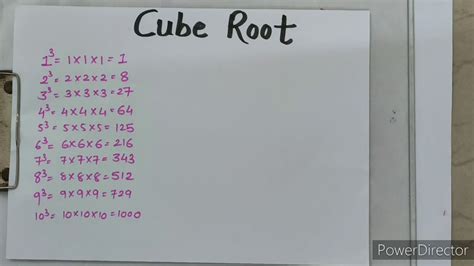 Cube Root
1³ = 1×1×1 = 1
2³ = 2×2×2 = 8
3³ = 3×3×3 = 27
4³ = 4×4×4 = 64
5³ = 5×5×5 = 125
6³ = 6×6×6 = 216
7³ = 7×7×7 = 343
8³ = 8×8×8 = 512
9³ = 9×9×9 = 729
10³ = 10×10×10 = 1000
PowerDirector